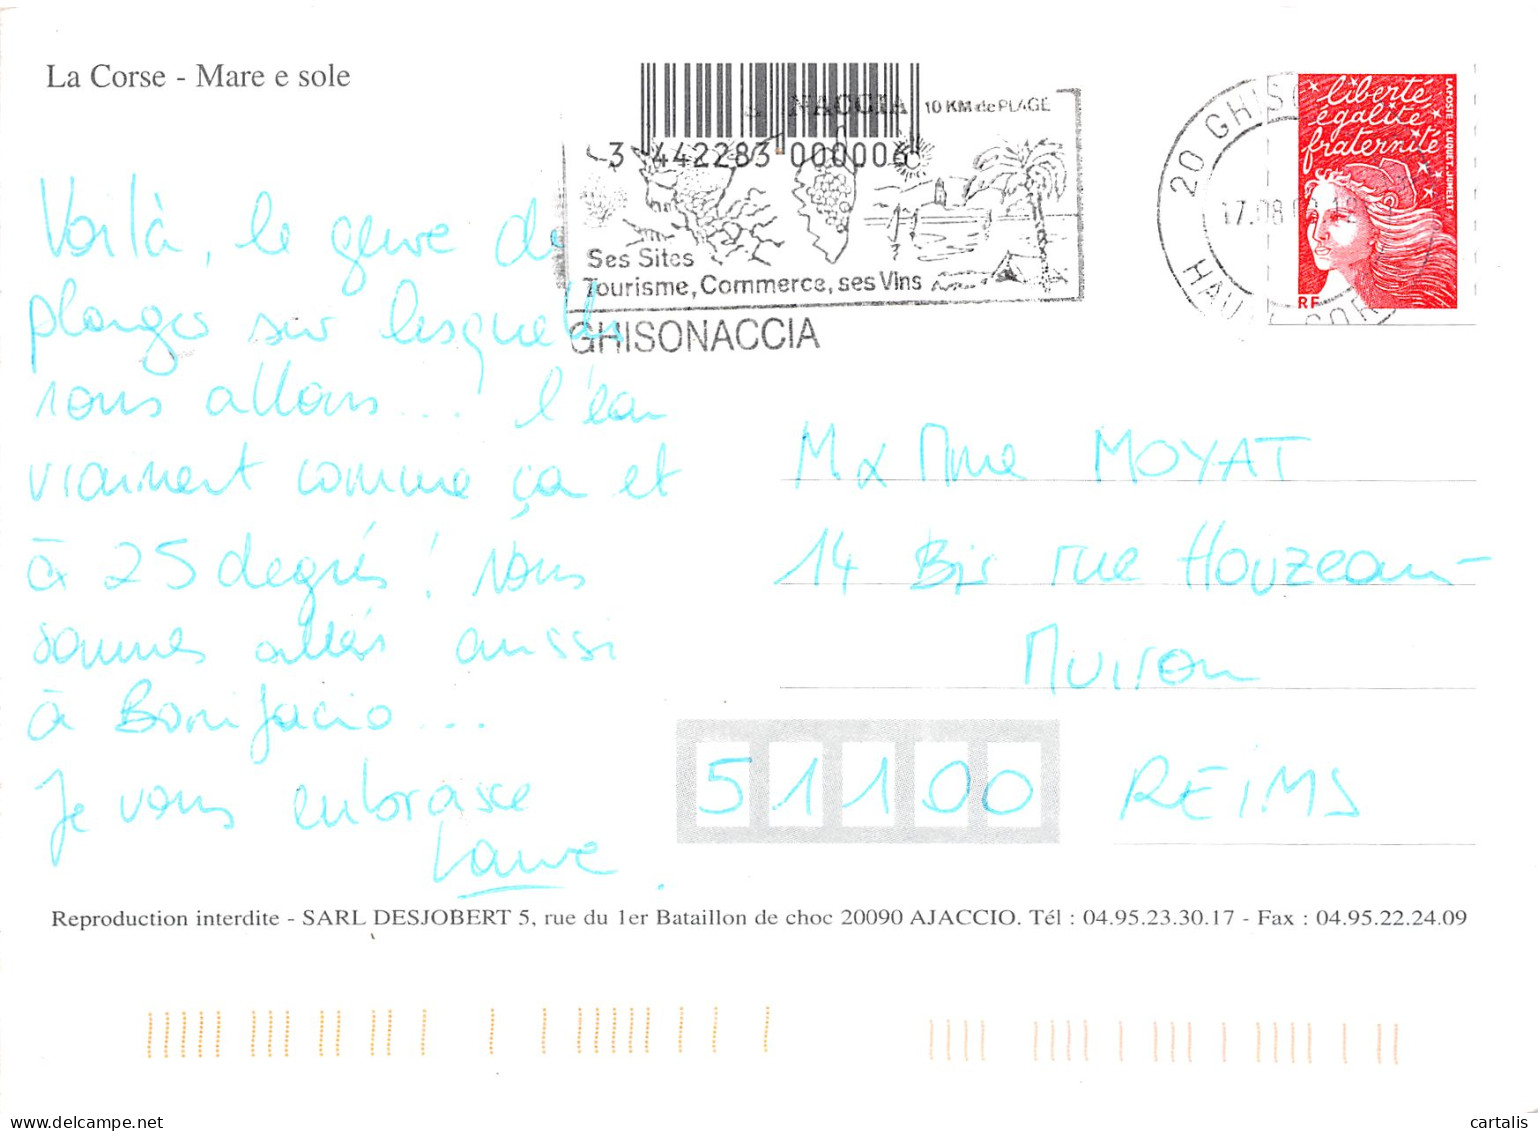 La Corse - Mare e sole
NACCIA 10 KM de PLAGE
3 442283 000006
Ses Sites
Tourisme, Commerce, ses Vins
GHISONACCIA
20 GHISO
17.08
HAU CORSE
liberté
égalité
fraternité
LA POSTE LUQUET.JUMELET
RF
Voilà, le genre de
plages sur lesquelles
nous allons... l'eau
vraiment comme ça et
à 25 degrés ! Nous
sommes allés aussi
à Bonifacio...
Je vous embrasse
Laure.
M & Mme MOYAT
14 Bis rue Houzeau-
Muiron
51100 REIMS
Reproduction interdite - SARL DESJOBERT 5, rue du 1er Bataillon de choc 20090 AJACCIO. Tél : 04.95.23.30.17 - Fax : 04.95.22.24.09
cartalis